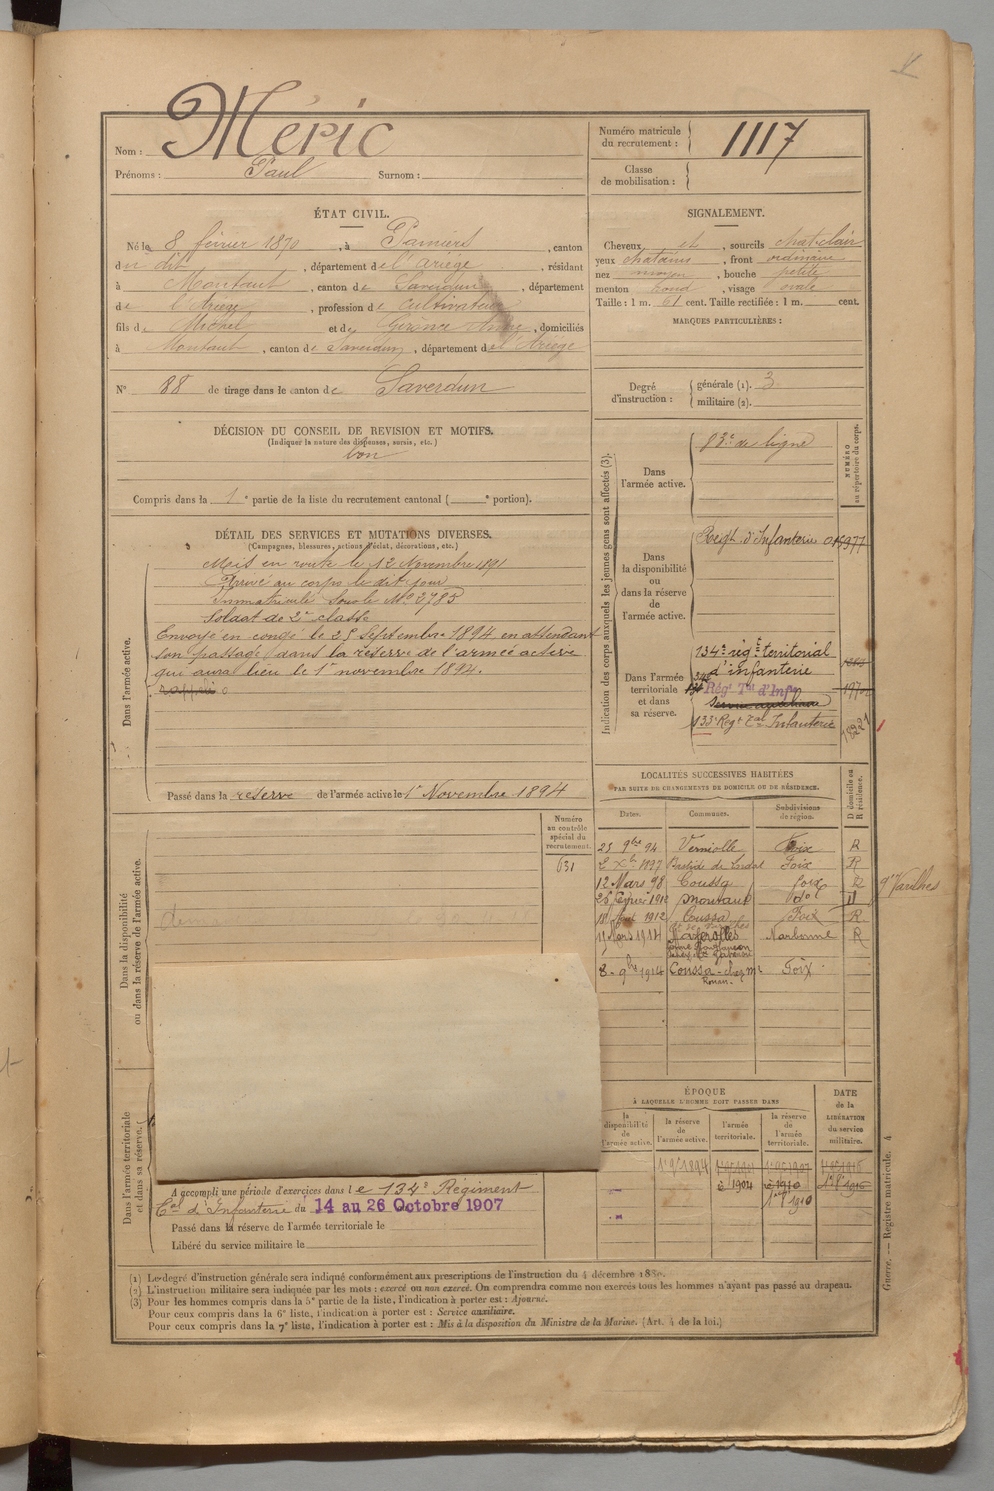 Nom : Méric
Prénoms : Paul Surnom :
Numéro matricule du recrutement : 1117
Classe de mobilisation :
ÉTAT CIVIL.
Né le 8 février 1870, à Pamiers, canton
du dit, département de l'Ariège, résidant
à Montaut, canton de Saverdun, département
de l'Ariège, profession de cultivateur
fils de Michel et de Anne, domiciliés
à Montaut, canton de Saverdun, département de l'Ariège
N° 88 de tirage dans le canton de Saverdun
SIGNALEMENT.
Cheveux et, sourcils chat-clair
yeux chatains, front ordinaire
nez moyen, bouche petite
menton rond, visage ovale
Taille : 1 m. 61 cent. Taille rectifiée : 1 m. cent.
MARQUES PARTICULIÈRES :
Degré d'instruction :
générale (1). 3
militaire (2).
DÉCISION DU CONSEIL DE REVISION ET MOTIFS.
(Indiquer la nature des dispenses, sursis, etc.)
bon
Compris dans la 1e partie de la liste du recrutement cantonal ( e portion).
DÉTAIL DES SERVICES ET MUTATIONS DIVERSES.
(Campagnes, blessures, actions d'éclat, décorations, etc.)
Dans l'armée active.
Mis en route le 12 Novembre 1891
Arrivé au corps le dit jour
Immatriculé sous le N° 2785
Soldat de 2e classe
Envoyé en congé le 25 Septembre 1894 en attendant
son passage dans la réserve de l'armée active
qui aura lieu le 1er novembre 1894.
Passé dans la réserve de l'armée active le 1er Novembre 1894
Indication des corps auxquels les jeunes gens sont affectés (3).
NUMÉRO au répertoire du corps.
Dans l'armée active.
83e de ligne
Dans la disponibilité ou dans la réserve de l'armée active.
Regt. d'Infanterie
Dans l'armée territoriale et dans sa réserve.
134e régt territorial
d'infanterie
134 Régt Tal d'Infie
133e Regt Tal Infanterie
LOCALITÉS SUCCESSIVES HABITÉES
PAR SUITE DE CHANGEMENTS DE DOMICILE OU DE RÉSIDENCE.
Dates. Communes. Subdivisions de région. D domicile ou R résidence.
25 9bre 94 Verniolle Foix R
2 Xbre 1897 Bastide de Lordat Foix R
12 Mars 98 Coussa Foix R
26 février 1912 Montaut do D
18 Août 1912 Coussa Foix R
11 Mars 1914 Narbonne R
8 9bre 1914 Coussa - chez Mr Foix
Dans la disponibilité ou dans la réserve de l'armée active.
Numéro au contrôle spécial du recrutement.
631
Dans l'armée territoriale et dans sa réserve.
ÉPOQUE
À LAQUELLE L'HOMME DOIT PASSER DANS
la disponibilité de l'armée active.
la réserve de l'armée active.
l'armée territoriale.
la réserve de l'armée territoriale.
DATE de la LIBÉRATION du service militaire.
1904 1910
A accompli une période d'exercices dans le 134e Régiment
Tal d'Infanterie du 14 au 26 Octobre 1907
Passé dans la réserve de l'armée territoriale le
Libéré du service militaire le
(1) Le degré d'instruction générale sera indiqué conformément aux prescriptions de l'instruction du 4 décembre 1889.
(2) L'instruction militaire sera indiquée par les mots : exercé ou non exercé. On comprendra comme non exercés tous les hommes n'ayant pas passé au drapeau.
(3) Pour les hommes compris dans la 5e partie de la liste, l'indication à porter est : Ajourné.
Pour ceux compris dans la 6e liste, l'indication à porter est : Service auxiliaire.
Pour ceux compris dans la 7e liste, l'indication à porter est : Mis à la disposition du Ministre de la Marine. (Art. 4 de la loi.)
Guerre. — Registre matricule. 4